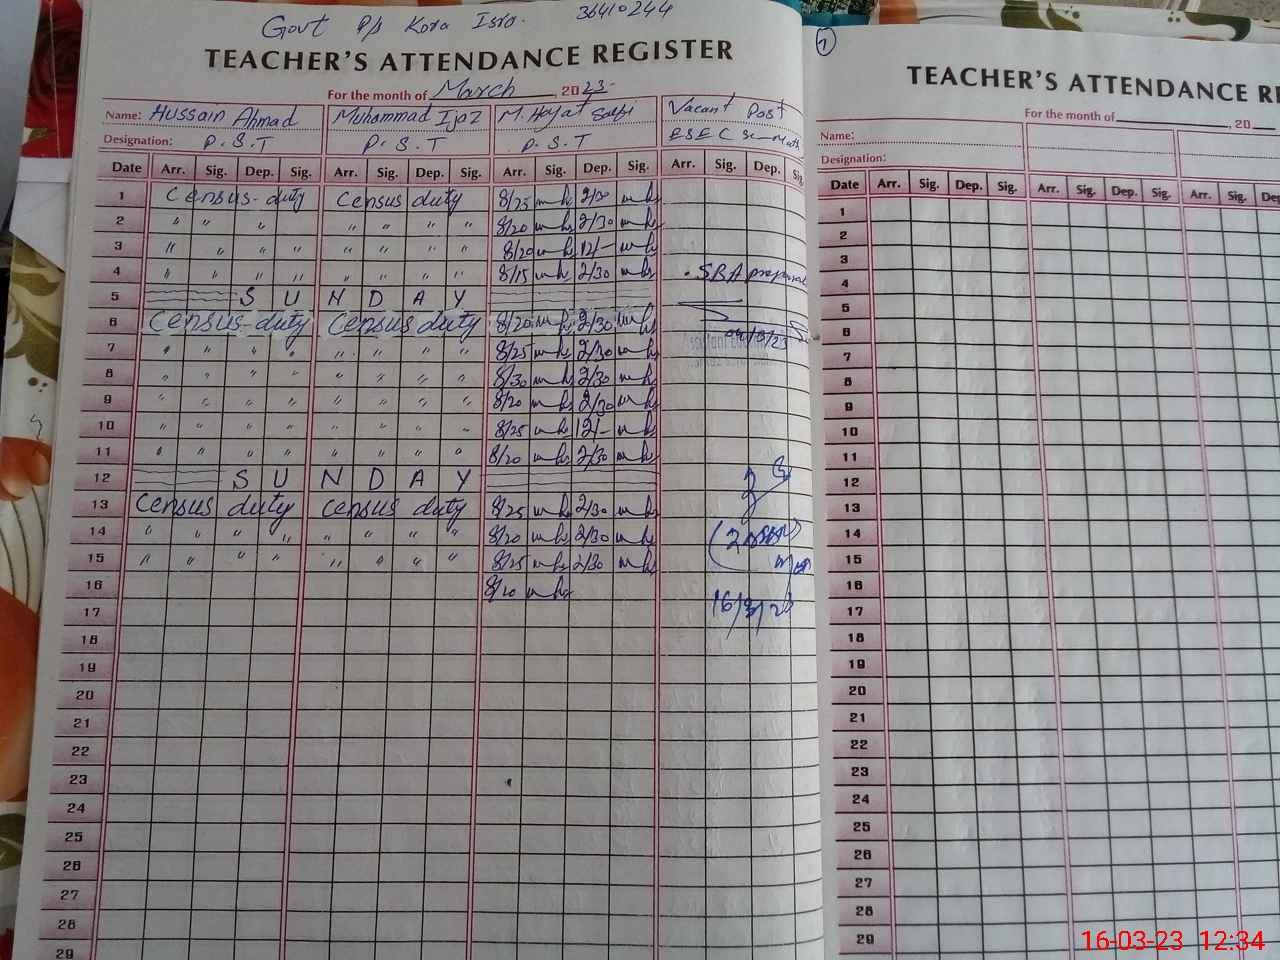 Govt P/s Kora Isro. 36410244
TEACHER'S ATTENDANCE REGISTER
For the month of March, 2023
Name: Hussain Ahmad Muhammad Ijaz M. Hayat Vacant Post
Designation: P.S.T P.S.T P.S.T ESE
Date Arr. Sig. Dep. Sig. Arr. Sig. Dep. Sig. Arr. Sig. Dep. Sig. Arr. Sig. Dep. Sig.
1 Census-duty Census duty 8/25 2/30
2 " " " " " " " 8/20 2/30
3 " " " " " " " " 8/20 12/-
4 " " " " " " " " 8/15 2/30 SBA
5 SUNDAY
6 Census-duty Census duty 8/20 2/30
7 " " " " " " " " 8/25 2/30
8 " " " " " " " " 8/30 2/30
9 " " " " " " " " 8/20 2/30
10 " " " " " " " " 8/25 12/-
11 " " " " " " " " 8/20 2/30
12 SUNDAY
13 Census duty Census duty 8/25 2/30
14 " " " " " " " " 8/20 2/30
15 " " " " " " " " 8/25 2/30
16 8/20
17 16/3/23
18
19
20
21
22
23
24
25
26
27
28
29
1
TEACHER'S ATTENDANCE RE
For the month of , 20
Name:
Designation:
Date Arr. Sig. Dep. Sig. Arr. Sig. Dep. Sig. Arr. Sig. De
1
2
3
4
5
6
7
8
9
10
11
12
13
14
15
16
17
18
19
20
21
22
23
24
25
26
27
28
29
16-03-23 12:34